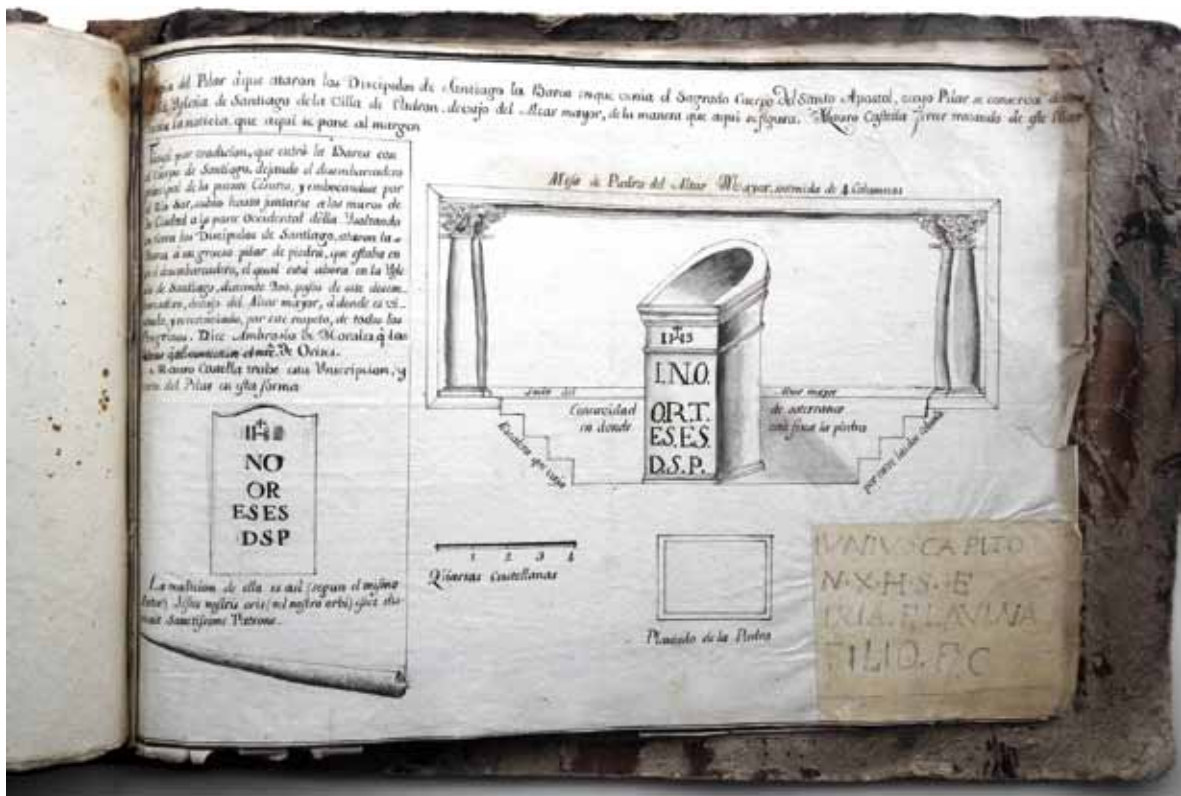 del Pilar à que ataran los Discipulos de Santiago la Barca en que venia el Sagrado Cuerpo del Santo Apostol, cuyo Pilar se conserva
Yglesia de Santiago de la Villa de Padron, devajo del Altar mayor, de la manera que aqui se figura. Mauro Castella
la noticia, que aqui se pone al margen
por tradicion, que entrò la Barca con
el Cuerpo de Santiago, dejando el desembarcadero
principal de la puente Cesures, y embocandose por
el Rio Sar, subio hasta juntarse a los muros de
la Ciudad a la parte Occidental della. Y saltando
en tierra los Discipulos de Santiago, ataron la
Barca à un grueso pilar de piedra, que estaba en
el desembarcadero, el qual està ahora en la Ygle
de Santiago, distante pasos de este desem
devajo del Altar mayor, à donde es vi
y reverenciado, por este respeto, de todos los
Peregrinos. Dice Ambrosio de Morales q̃ las
de Orises.
Mauro Castella trahe esta Ynscripcion, y
del Pilar en esta forma
IHS
NO
OR
ESES
DSP
La traducion de ella es asi (segun el mismo
Autor) nostris oris (vel nostro orbi)
Sanctissime Patrone.
Mesa de Piedra del Altar Mayor, sostenida de 4 Columnas
IHS
I.N.O.
O.R.T.
ES.ES.
D.S.P.
Suelo del Altar mayor
Concavidad de soterraneo
en donde està fixa la piedra
Escalera que vaja
por entre las dos colunas
1 2 3 4
Quartas Castellanas
Planta de la Piedra
CAPITO
N·X·H·S·E
IRIA·FLAVINIA
FILIO·F·C